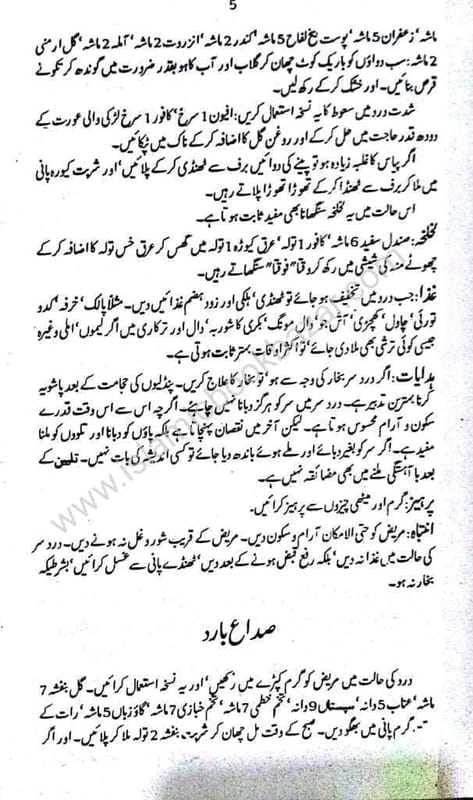 5
ماشہ' زعفران 5 ماشہ' پوست بیخ لفاح 5 ماشہ' کندر 2 ماشہ' انزروت 2 ماشہ' آملہ 2 ماشہ' گل ارمنی
2 ماشہ: سب دواؤں کو باریک کوٹ چھان کر گلاب اور آب کاہو بقدر ضرورت میں گوندھ کر تکونے
قرص بنائیں۔ اور خشک کر کے رکھ لیں۔
شدت درد میں سعوط کا یہ نسخہ استعمال کریں: افیون 1 سرخ' کافور 1 سرخ لڑکی والی عورت کے
دودھ قدر حاجت میں حل کر کے اور روغن گل کا اضافہ کر کے ناک میں ٹپکائیں۔
اگر پیاس کا غلبہ زیادہ ہو تو پینے کی دوائیں برف سے ٹھنڈی کر کے پلائیں' اور شربت کیوڑہ پانی
میں ملا کر برف سے ٹھنڈا کر کے تھوڑا تھوڑا پلاتے رہیں۔
اس حالت میں یہ لخلخہ سنگھانا بھی مفید ثابت ہوتا ہے۔
لخلخہ: صندل سفید 6 ماشہ' کافور 1 تولہ' عرق کیوڑہ 1 تولہ میں گھس کر عرق خس تولہ کا اضافہ کر کے
چھوٹے منہ کی شیشی میں رکھ کر وقتا" فوقتا" سنگھاتے رہیں۔
غذا: جب درد میں تخفیف ہو جائے تو ٹھنڈی' ہلکی اور زود ہضم غذائیں دیں۔ مثلاً پالک' خرفہ' کدو
توری' چاول' کھچڑی' آش جو' دال مونگ' بکری کا شوربہ' دال اور ترکاری میں اگر لیموں' املی وغیرہ
جیسی کوئی ترشی بھی ملا دی جائے' تو اکثر اوقات بہتر ثابت ہوتی ہے۔
ہدایات: اگر درد سر بخار کی وجہ سے ہو' تو بخار کا علاج کریں۔ پنڈلیوں کی حجامت کے بعد پاشویہ
کرنا بہترین تدبیر ہے۔ درد سر میں سر کو ہرگز دبانا نہیں چاہئے۔ اگرچہ اس سے اس وقت قدرے
سکون و آرام محسوس ہوتا ہے۔ لیکن آخر میں نقصان پہنچاتا ہے بلکہ پاؤں کو دبانا اور تلوؤں کو ملنا
مفید ہے۔ اگر سر کو بغیر دبائے اور ملے ہوئے باندھ دیا جائے تو کسی اندیشہ کی بات نہیں۔ تلیین کے
بعد باہستگی ملنے میں بھی مضائقہ نہیں ہے۔
پرہیز: گرم اور میٹھی چیزوں سے پرہیز کرائیں۔
انتباہ: مریض کو حتی الامکان آرام و سکون دیں۔ مریض کے قریب شور و غل نہ ہونے دیں۔ درد سر
کی حالت میں غذا نہ دیں' بلکہ رفع قبض ہونے کے بعد دیں' ٹھنڈے پانی سے غسل کرائیں' بشرطیکہ
بخار نہ ہو۔
صداع بارد
درد کی حالت میں مریض کو گرم کپڑے میں رکھیں' اور یہ نسخہ استعمال کرائیں۔ گل بنفشہ 7
ماشہ' عناب 5 دانہ' سپستاں 9 دانہ' تخم خطمی 7 ماشہ' تخم خبازی 7 ماشہ' گاؤ زباں 5 ماشہ' رات کے
گرم پانی میں بھگو دیں۔ صبح کے وقت مل چھان کر شربت بنفشہ 2 تولہ ملا کر پلائیں۔ اور اگر